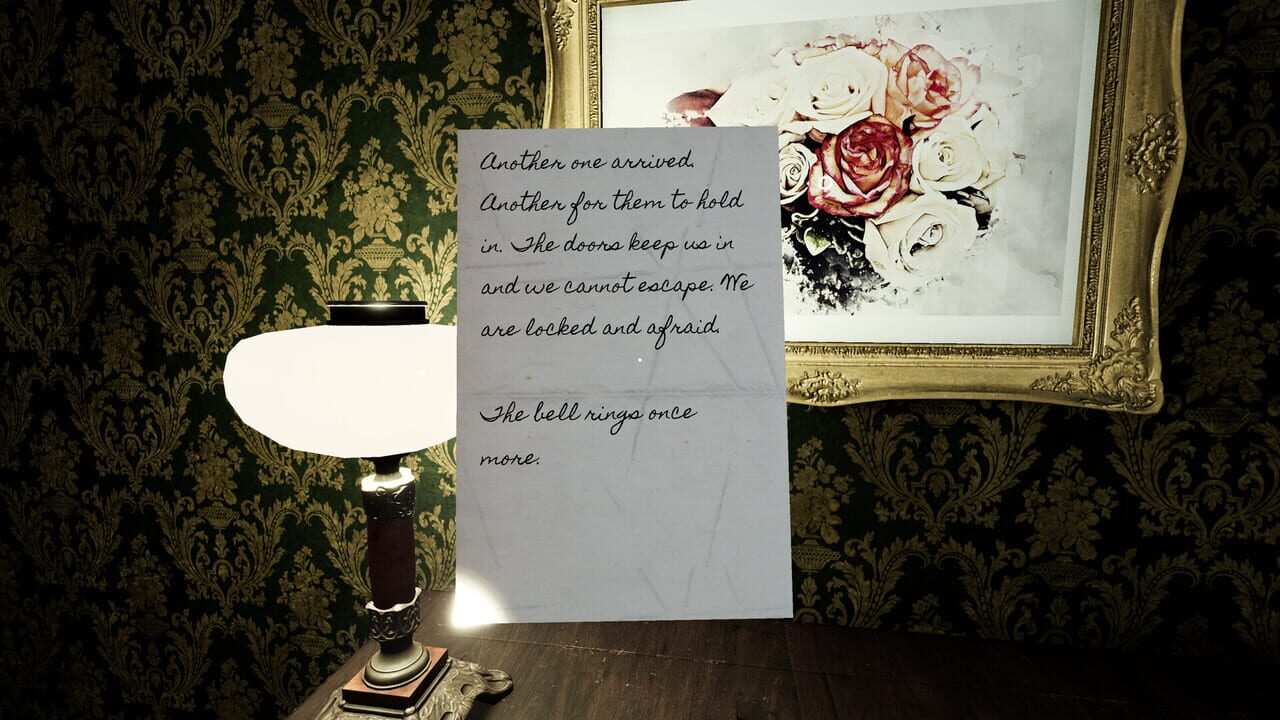 Another one arrived.
Another for them to hold
in. The doors keep us in
and we cannot escape. We
are locked and afraid.
The bell rings once
more.